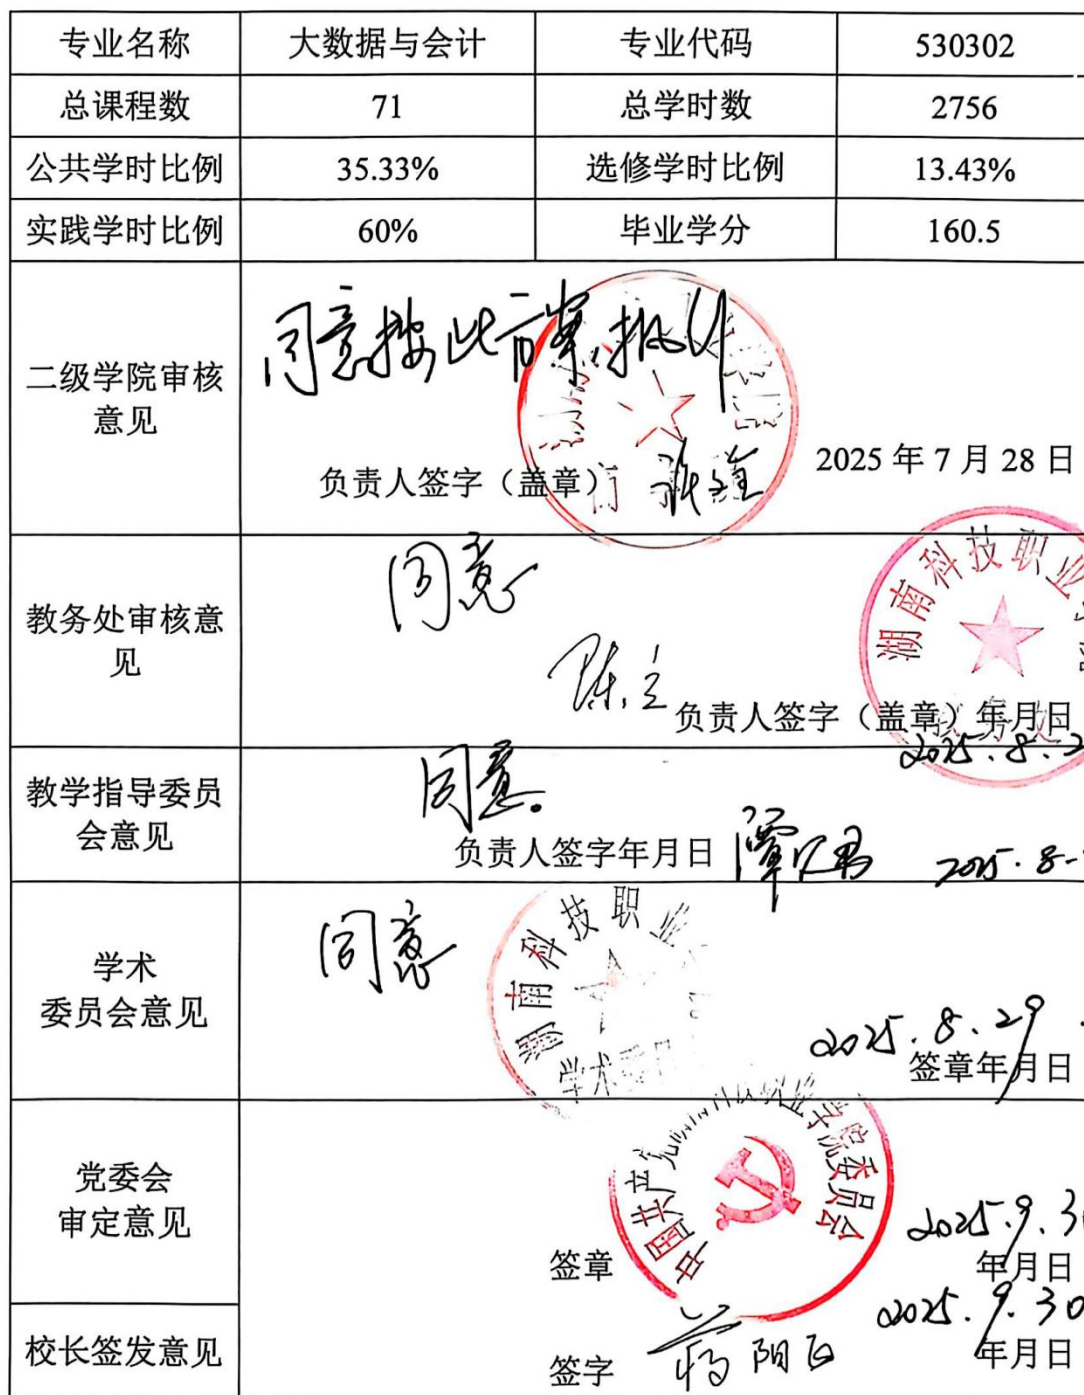 专业名称 大数据与会计 专业代码 530302
总课程数 71 总学时数 2756
公共学时比例 35.33% 选修学时比例 13.43%
实践学时比例 60% 毕业学分 160.5
二级学院审核
意见
同意按此方案执行
负责人签字（盖章）
2025 年 7 月 28 日
教务处审核意
见
同意
陈立
湖南科技职业
负责人签字（盖章）年月日
2025.8.2
教学指导委员
会意见
同意。
负责人签字年月日
2025.8-
学术
委员会意见
同意
湖南科技职业
学术
2025.8.29
签章年月日
党委会
审定意见
中国共产党湖南科技职业学院委员会
签章
2025.9.30
年月日
校长签发意见
签字
2025.9.30
年月日